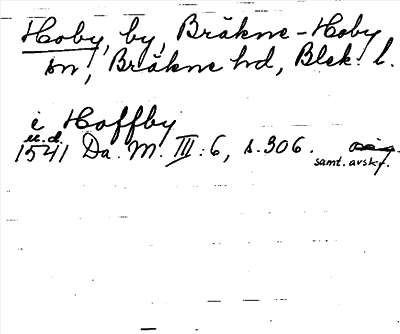 Hoby, by, Bräkne-Hoby
sn, Bräkne hd, Blek. l.
i Hoffby
u.d.
1541 Da. M. III: 6, s. 306. orig.
samt. avskr.